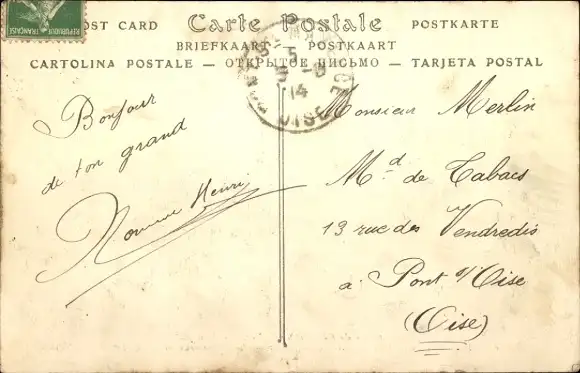 POST CARD Carte Postale POSTKARTE
BRIEFKAART POSTKAART
CARTOLINA POSTALE — ОТКРЫТОЕ ПИСЬМО — TARJETA POSTAL
REPUBLIQUE FRANÇAISE
5
14
OISE
Bonjour
de ton grand
Henri
Monsieur Merlin
Md de Tabacs
13 rue des Vendredis
a Pont s/ Oise
(Oise)